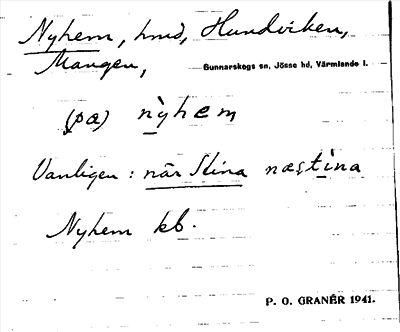 Nyhem, hmd, Hundviken,
Mangen,
Gunnarskogs sn, Jösse hd, Värmlands l.
(pæ) nỳhem
Vanligen: när Stina næʂtina
Nyhem kb.
P. O. GRANÉR 1941.